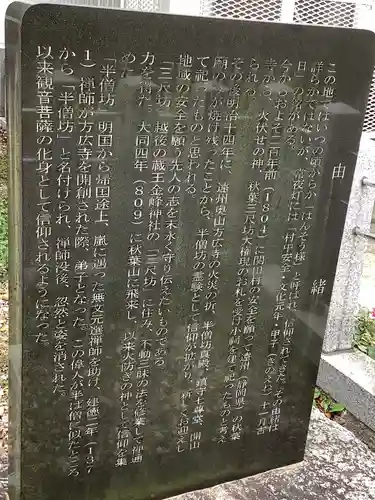 由緒
この地ではいつの頃からか「はんぞう様」と呼ばれ、信仰されてきた。その由緒は
詳らかではないが、常夜灯には「村内安全」「文化元年・甲子（きのえね）十一月吉
日」の名がある。
今からおよそ二百年前（1804）に関田村の安全を願って遠州（静岡県）の秋葉
寺から、火伏せの神、秋葉三尺坊大権現のお札を受け小祠を建て祀ったものと考え
られる。
その後明治十四年に、遠州奥山方広寺の火災の折、半僧坊真殿、鎮守七尊堂、開山
て祀ったものと思われる。
地域の安全を願う先人の志を末永く守り伝えたいものである。
「三尺坊」越後の蔵王金峰神社の「三尺坊」に住み、不動三昧の法を修業して神通
力を得た。大同四年（809）に秋葉山に飛来し、以来火防ぎの神として信仰を集
めた。
「半僧坊」明国から帰国途上、嵐に遇った無文元選禅師を助け、建徳二年（137
1）禅師が方広寺を開創された際、弟子となった。この偉人が半ば僧に似たところ
から、「半僧坊」と名付けられ、禅師没後、忽然と姿を消された。
以来観音菩薩の化身として信仰されるようになった。